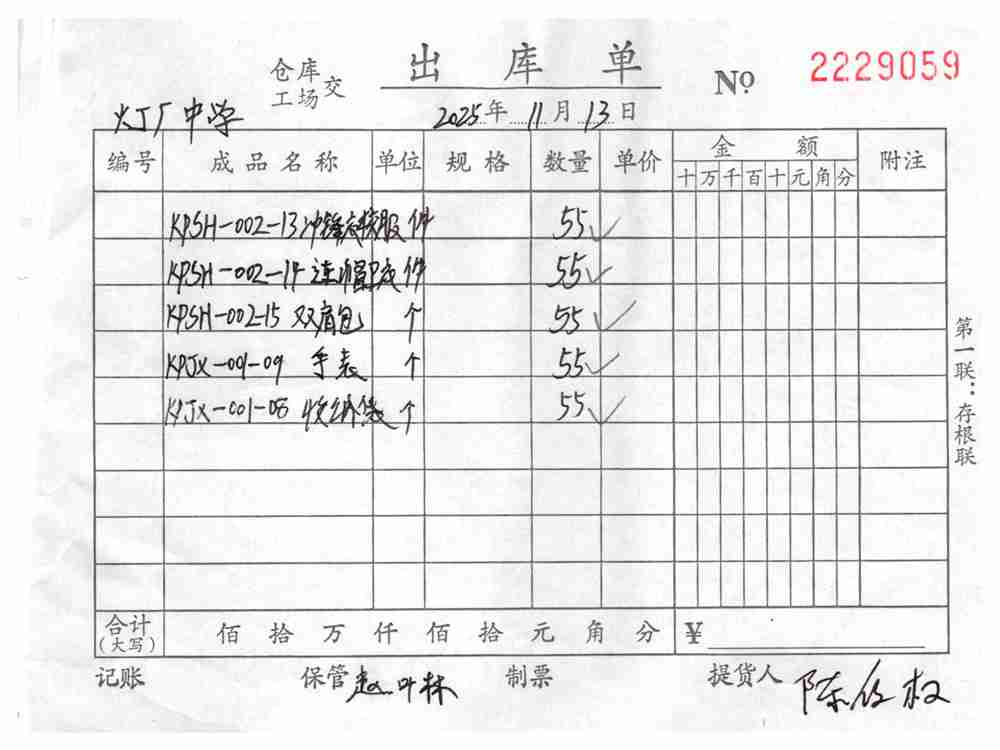 仓库
工场交
出库单
No. 2229059
灯厂中学
2025年11月13日
编号 成品名称 单位 规格 数量 单价 金额 附注
十万千百十元角分
KPSH-002-13 冲锋衣校服 件 55
KPSH-002-14 连帽卫衣 件 55
KPSH-002-15 双肩包 个 55
KPJX-001-09 手表 个 55
KPJX-001-08 收纳袋 个 55
第一联：存根联
合计(大写) 佰拾万仟佰拾元角分 ¥
记账 保管 赵叶林 制票 提货人 陈 权